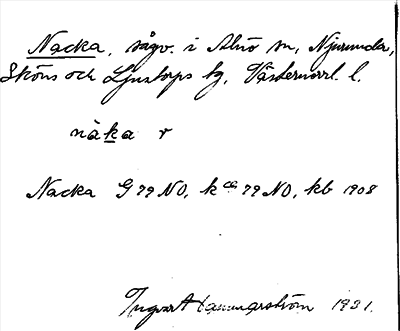 Nacka, sågv. i Alnö sn, Njurunda,
Sköns och Ljustorps tg, Västernorrl. l.
nàka r
Nacka G 79 NO, k ca 79 NO, kb 1908
Ingvart Hammarström 1931.